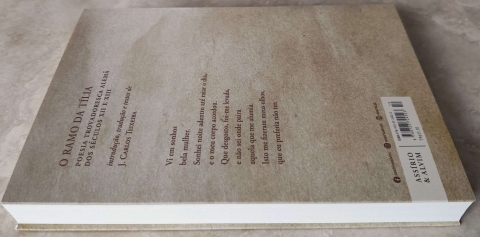 O RAMO DA TÍLIA
POESIA TROVADORESCA ALEMÃ
DOS SÉCULOS XII E XIII
introdução, tradução e notas de
J. CARLOS TEIXEIRA
Vi em sonhos
bela mulher.
Sonhei noite adentro até raiar o dia,
e o meu corpo acordar.
Que desgosto, foi-me levada,
e não sei onde para
aquela que me alumia.
Isto me fizeram meus olhos,
que eu preferia não ter.
ASSÍRIO
& ALVIM